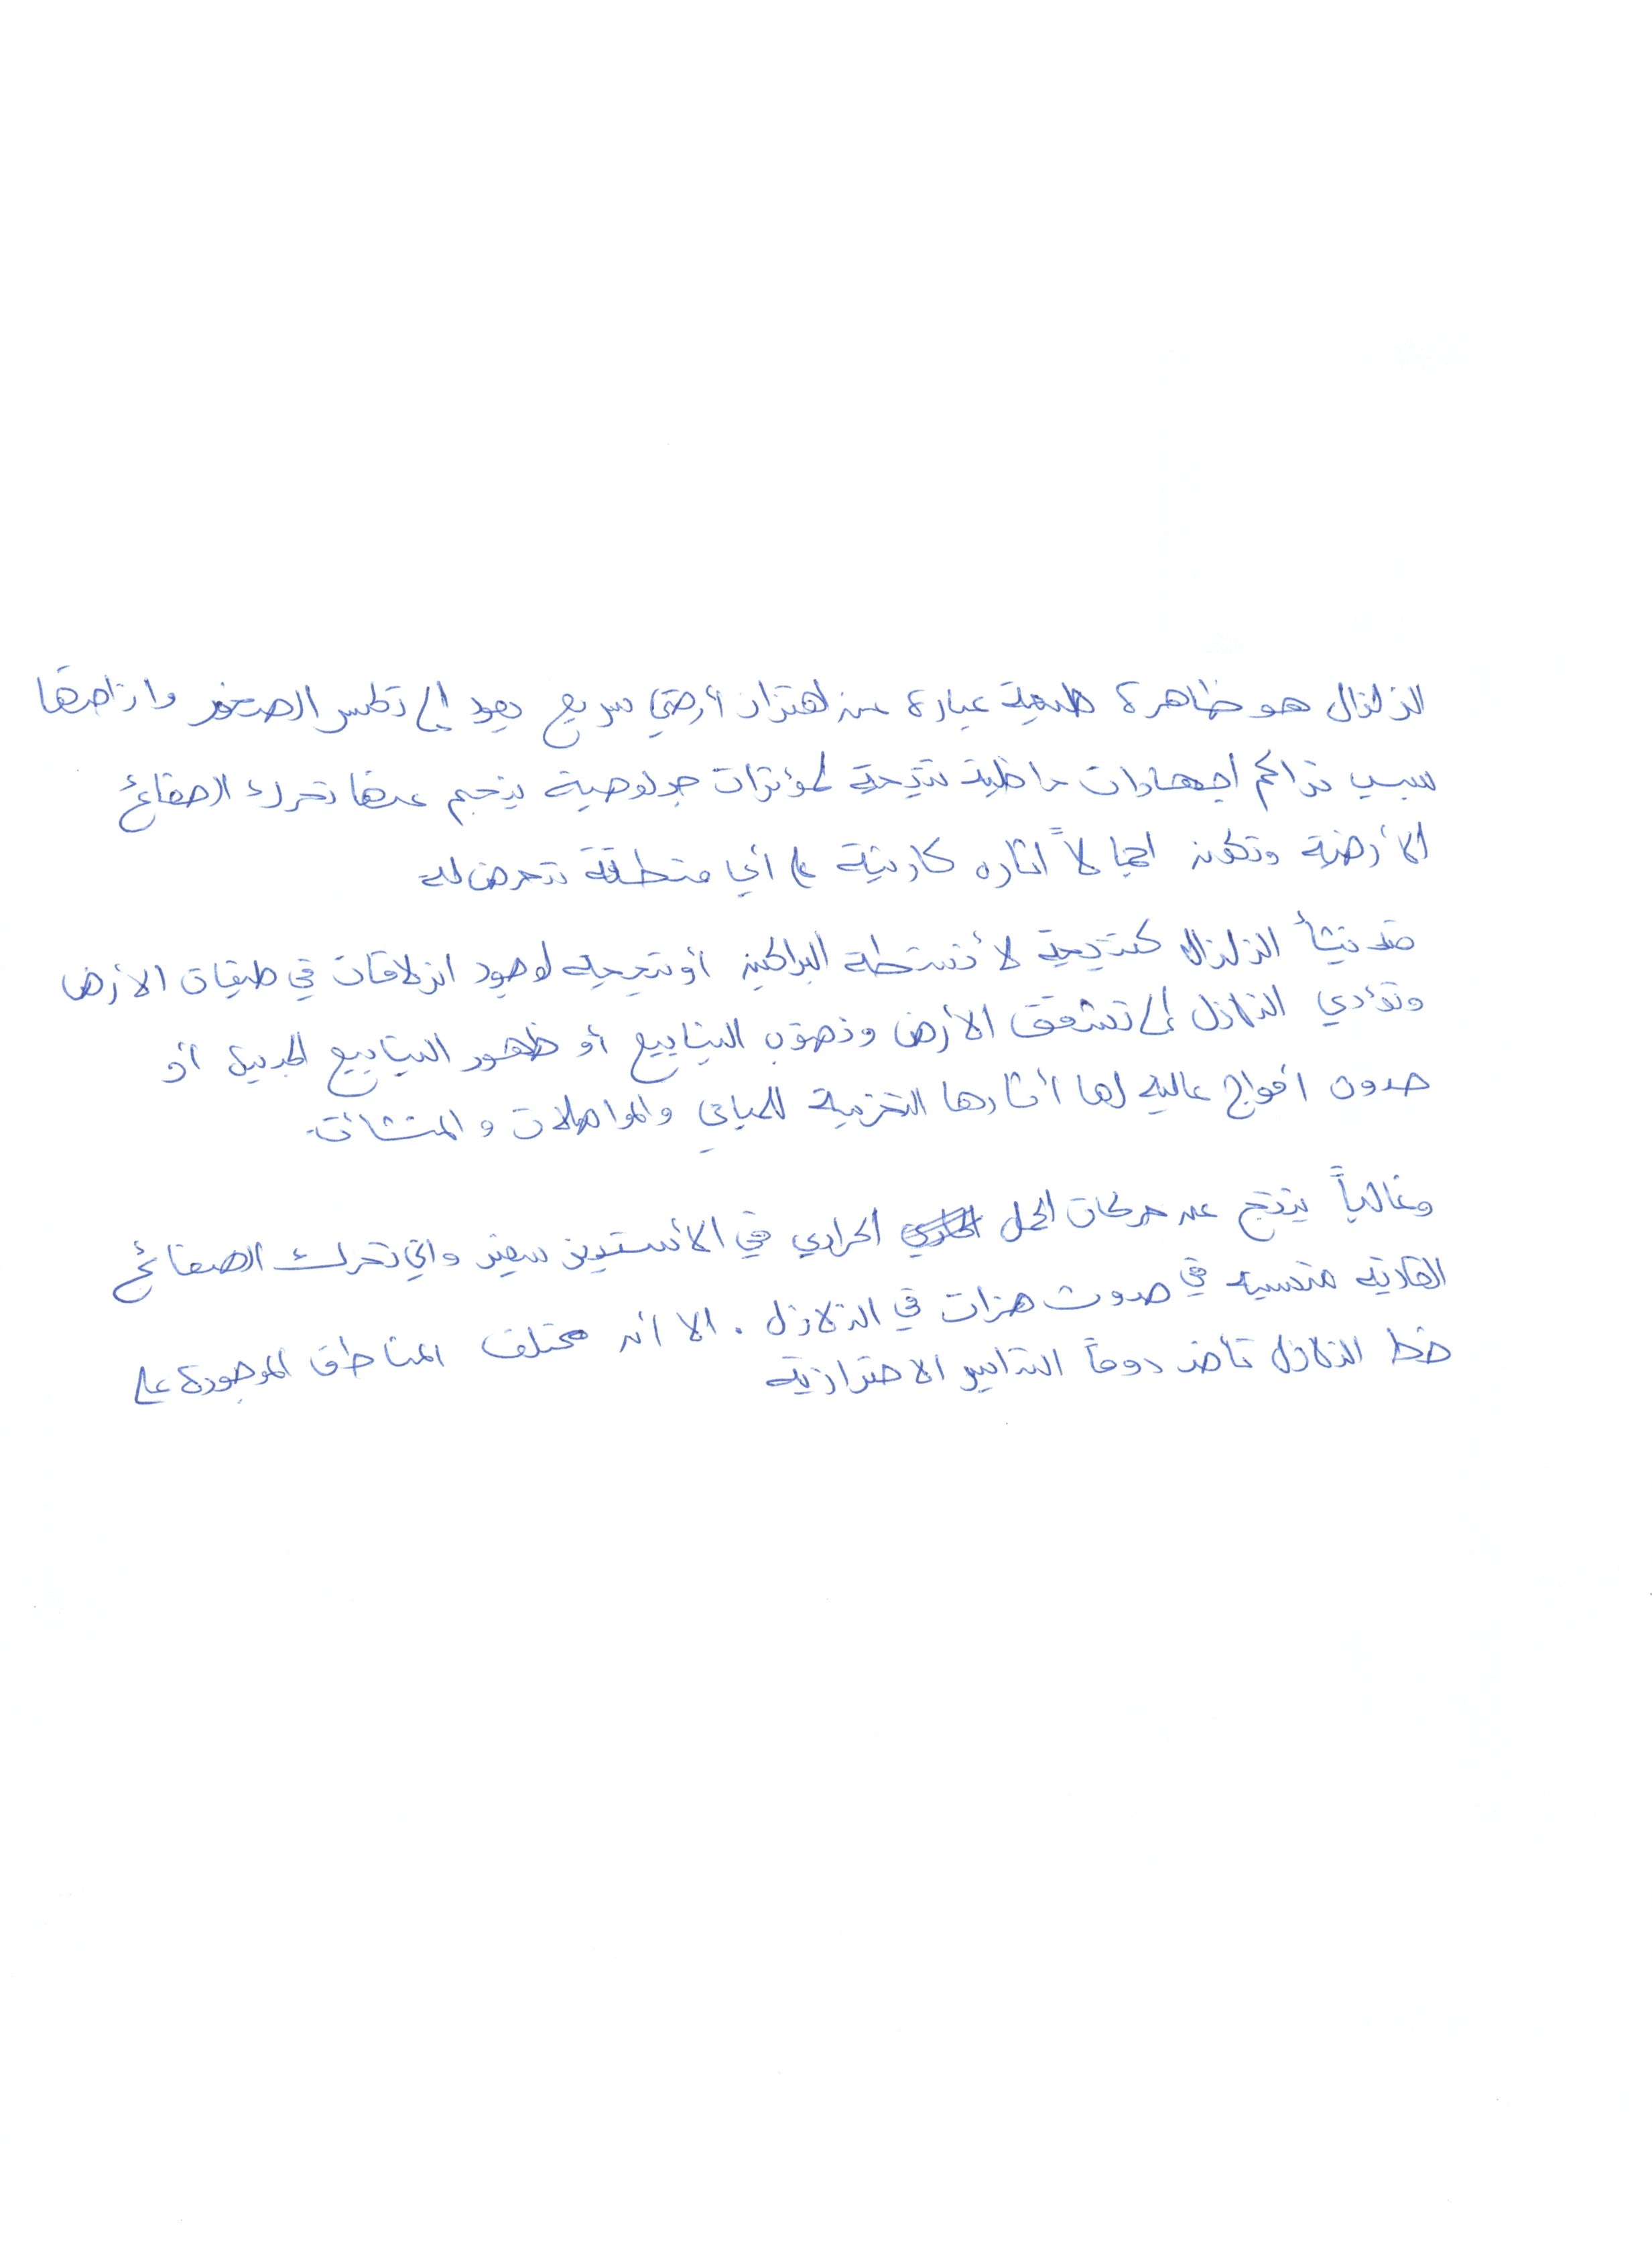 الزلزال هو ظاهرة طبيعية عبارة عن اهتزاز أرضي سريع يعود إلى تكسر الصخور وازاحتها
بسبب تراكم اجهادات داخلية نتيجة لمؤثرات جيولوجية ينجم عنها تحرك الصفائح
الأرضية وتكون اجمالاً اثاره كارثية على أي منطقة تتعرض له
قد ينشأ الزلزال كنتيجة لأنشطة البراكين أو نتيجة لوجود انزلاقات في طبقات الأرض
وتؤدي الزلازل إلى تشقق الأرض ونضوب الينابيع أو ظهور الينابيع الجديدة أو
حدوث أمواج عالية لها أثارها التخريبية للمباني والمواصلات والمنشأت.
وغالباً ينتج عن حركات الحمل الحراري في الأستينوسفير والتي تحرك الصفائح
القارية متسببة في حدوث هزات في الزلازل. الا أن مختلف المناطق الموجودة على
خط الزلازل تأخذ دوماً التدابير الاحترازية